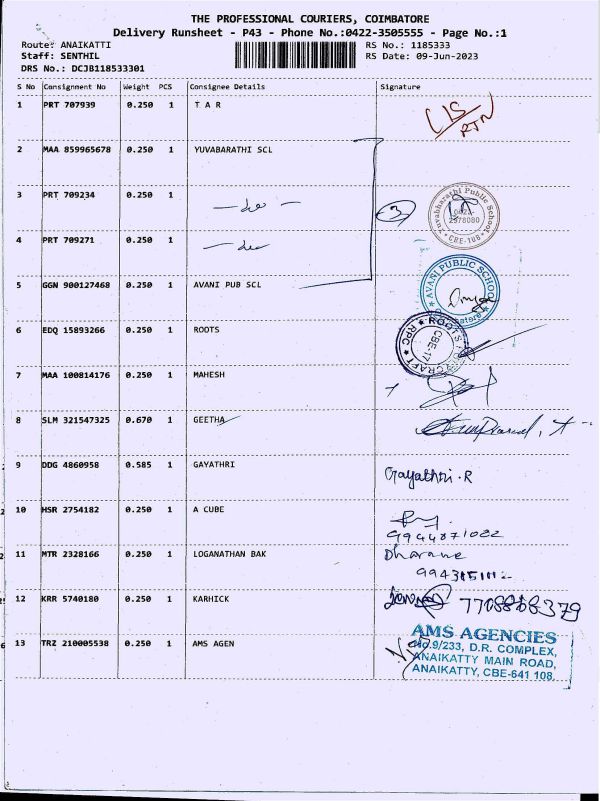 THE PROFESSIONAL COURIERS, COIMBATORE
Delivery Runsheet - P43 - Phone No.:0422-3505555 - Page No.:1
Route: ANAIKATTI RS No.: 1185333
Staff: SENTHIL RS Date: 09-Jun-2023
DRS No.: DCJB118533301
S No Consignment No Weight PCS Consignee Details Signature
1 PRT 707939 0.250 1 T A R
RTN
2 MAA 859965678 0.250 1 YUVABARATHI SCL
3 PRT 709234 0.250 1
3
Yuvabharathi Public School
CBE-108
4 PRT 709271 0.250 1
5 GGN 900127468 0.250 1 AVANI PUB SCL
AVANI PUBLIC SCHOOL
6 EDQ 15893266 0.250 1 ROOTS
ROOTS
RPC
CBE-17
7 MAA 100814176 0.250 1 MAHESH
8 SLM 321547325 0.670 1 GEETHA
9 DDG 4860958 0.585 1 GAYATHRI
Gayathri.R
10 HSR 2754182 0.250 1 A CUBE
9944871022
11 MTR 2328166 0.250 1 LOGANATHAN BAK
12 KRR 5740180 0.250 1 KARHICK
13 TRZ 210005538 0.250 1 AMS AGEN
AMS AGENCIES
No.9/233, D.R. COMPLEX,
ANAIKATTY MAIN ROAD,
ANAIKATTY, CBE-641 108.